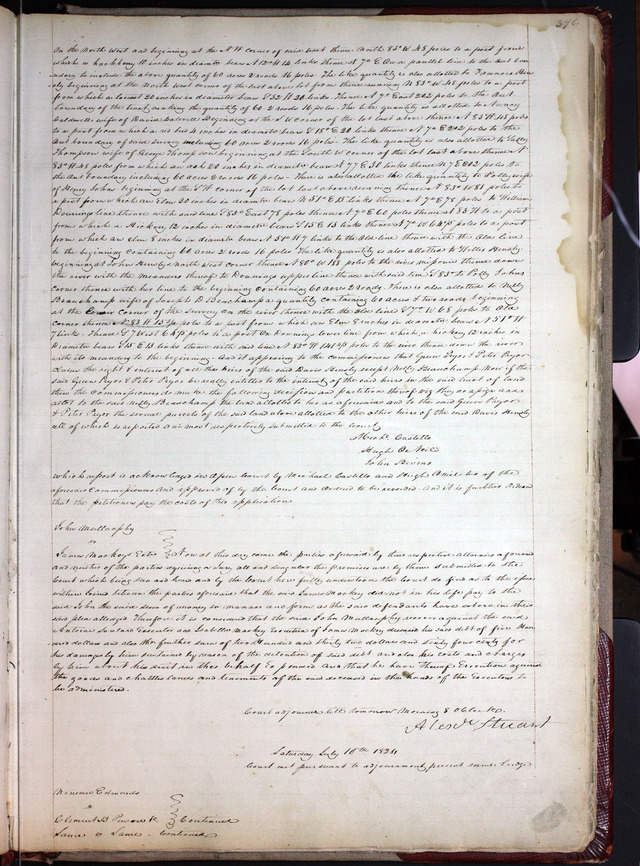 376
On the North West and beginning at the N W corner of said last thence North 83° W 48 poles to a post from
which a hackberry 10 inches in diameter bears N 12° W 14 links thence N 7° E On a parallel line to the Out boun-
dary to include the above quantity of 60 acres 2 roods 16 poles. The like quantity is also allotted to Hens-
ley beginning at the North west corner of the last above lot thence running N 83° W 48 poles to a post
from which a locust 20 inches in diameter bears S 32° W 20 links thence N 7° East 202 poles to the Out
boundary of the tract, making the quantity of 60 2 roods 16 poles. The like quantity is allotted to Nancy
Caldwell wife of David Caldwell Beginning at the S W corner of the lot last above thence N 83° W 48 poles
to a post from which a 4 inches in diameter bears S 15° E 20 links thence N 7° E 202 poles to the
Out boundary of said survey including 60 acres 2 roods 16 poles. The like quantity is also allotted to Sally
Thompson wife of George Thompson beginning at the South W corner of the lot last above thence N
83° W 48 poles from which an oak 20 inches in diameter bears N 77 E 30 links thence N 7° E 202 poles to
the Out boundary including 60 acres 2 roods 16 poles - There is also allotted the like quantity to Polly wife
of Henry Johns beginning at the S W corner of the lot last above running thence N 83° W 81 poles to
a post from which an Elm 20 inches in diameter bears N 51° E 13 links thence N 7° E 78 poles to William
Downings line thence with said line S 83° East 78 poles thence N 7° E 60 poles thence N 83 W to a post
from which a Hickory 12 inches in diameter bears S 13 E 13 links thence S 7° W 64 poles to a post
from which an Elm 8 inches in diameter bears N 51° W 7 links to the Old line thence with the Old line
to the beginning containing 60 acres 2 roods 16 poles. The like quantity is also allotted to Willis Hensley
beginning at John Hensley North West Corner thence N 80° W 18 poles to the river missouri thence down
the river with the meanders thereof to Downings upper line thence with said line S 83° to Polly Johns
Corner thence with her line to the beginning containing 60 acres 2 roods. There is also allotted to Milly
Beauchamp wife of Joseph D. Beauchamp a quantity containing 60 acres & two roods beginning
at the lower corner of the Survey on the river thence with the Old line S 7° W 68 poles to Old
Corner thence N 83 W 13 poles to a post from which an Elm 8 inches in diameter bears N 51° W
7 links thence S 7 West 64 poles to a post On Downings lower line from which a hickory 12 inches in
Diameter bears S 15 E 13 links thence with said line N 83° W 141 poles to the river thence down the river
with its meanders to the beginning. And it appearing to the commissioners that Green Pryor & Peter Pryor
claim the right & interest of all the heirs of the said Davis Hensley except Milly Beauchamp. Now if the
said Green Pryor & Peter Pryor be really entitled to the interest of the said heirs in the said tract of land
then the commissioners do make the following decision and partition thereof they do assign and
allot to the said Milly Beauchamp the land allotted to her as aforesaid and to the said Green Pryor
& Peter Pryor the several parcels of the said land above allotted to the other heirs of the said Davis Hensley
all of which is reported and most respectfully submitted to the Court
Michl. Castillo
Hugh O Neil
John Bivens
Which report is acknowledged in Open Court by Michael Castillo and Hugh ONeil two of the
aforesaid Commissioners and approved of by the Court and Ordered to be recorded. And it is further Ordered
that the petitioners pay the costs of this application
John Mullanphy
vs
James Mackeys Extrs Now at this day comes the parties aforesaid by their respective attornies aforesaid
and neither of the parties requiring a Jury, all and singular the premises are by them submitted to the
Court which being seen and heard and by the Court here fully understood the Court do find as to the issue
within Joined between the parties aforesaid that the said James Mackey did not in his life pay to the
said John the said sum of money in manner and form as the said defendants have above in their
said plea alledged. Therefore it is considered that the said John Mullanphy recover against the said
Antoine Soulard Executor and Isabella Mackey Executrix of James Mackey deceased his said debt of five Hun-
dred dollars and also the further sum of two Hundred and thirty two dollars and sixty four cents for
his damages by him sustained by reason of the detention of said debt and also his costs and charges
by him about his suit in this behalf Expended and that he have thereof Execution against
the goods and chattles lands and tenements of the said deceased in the hands of the Executors to
be administered.
Court adjourned till tomorrow Morning 8 oClock.
Alexr. Stuart
Saturday July 10th 1824
Court met pursuant to adjournment, present same Judge
Edwards
vs
Clement B Penrose &c Continued
Same vs Same. Continued.